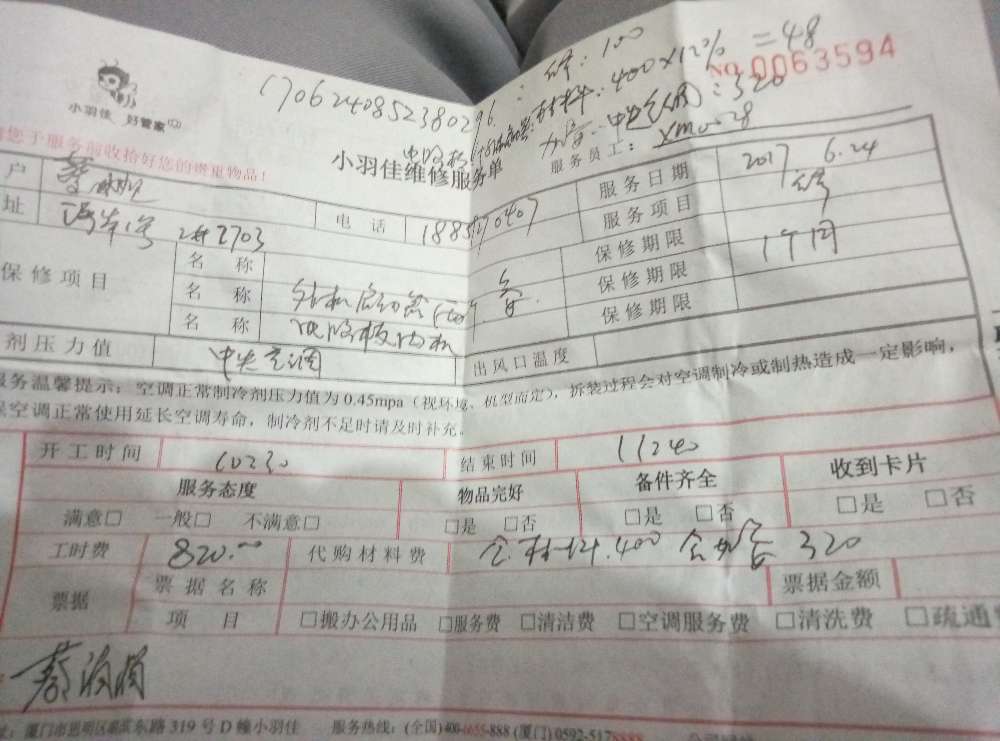 修：100
1706240852380296
材料：400×12%＝48
No 0063594
小羽佳 好管家
加雪：中央空调：320
您于服务前收拾好您的贵重物品！
小羽佳维修服务单
服务员工：xm0028
户
电话
服务日期 2017 6.24
址 2# 2703
服务项目 修
保修项目
名 称
保修期限 1个月
名 称 外机启动器
保修期限
名 称 电路板内机
保修期限
剂压力值 中央空调
出风口温度
服务温馨提示：空调正常制冷剂压力值为 0.45mpa（视环境、机型而定），拆装过程会对空调制冷或制热造成一定影响，
保空调正常使用延长空调寿命，制冷剂不足时请及时补充。
开工时间 10:30 结束时间 11:40
服务态度 物品完好 备件齐全 收到卡片
满意□ 一般□ 不满意□ □是 □否 □是 □否 □是 □否
工时费 820.00 代购材料费 含材料400 含加雪320
票据 票据名称 票据金额
项 目 □搬办公用品 □服务费 □清洁费 □空调服务费 □清洗费 □疏通
厦门市思明区湖滨东路 319 号 D 幢小羽佳 服务热线：(全国)400-6655-888 (厦门)0592-5178888